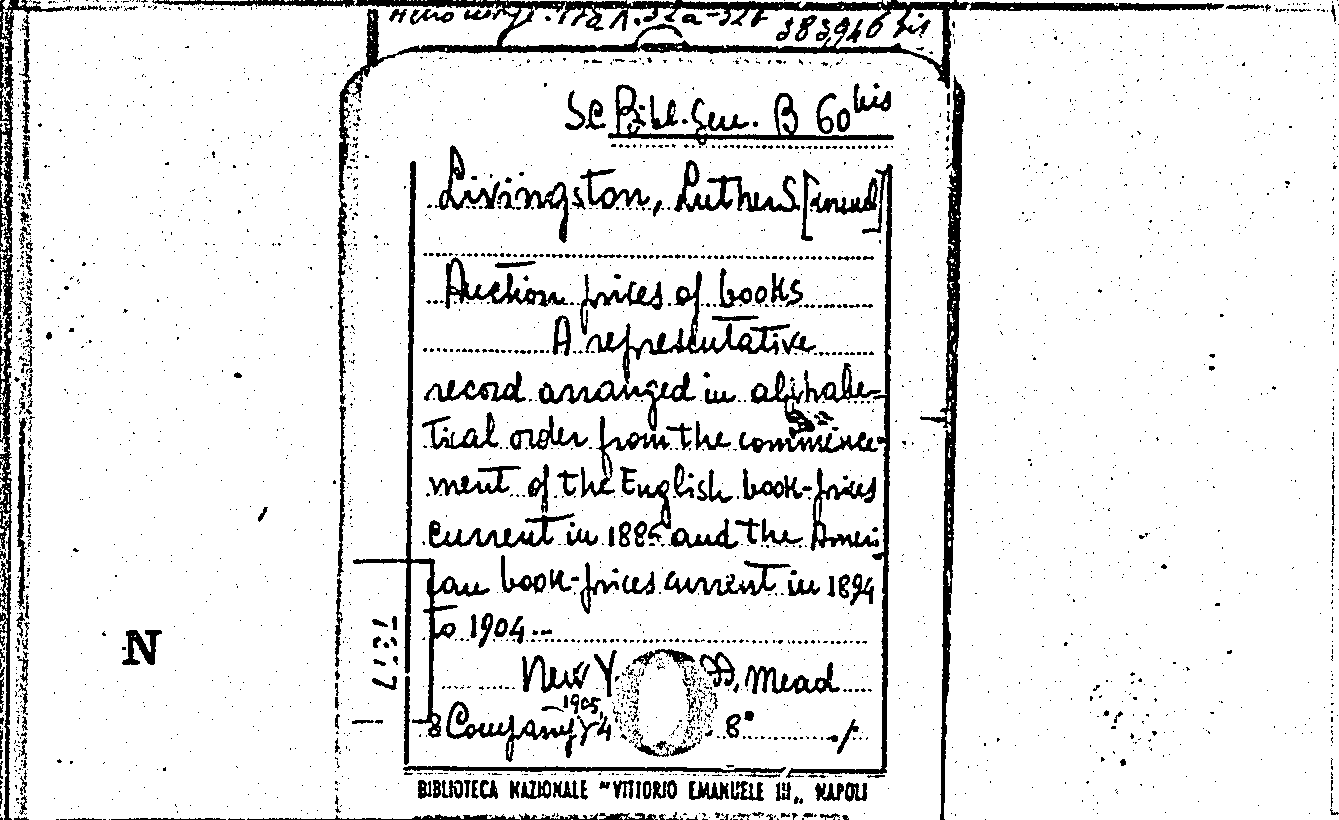 383946 bis
S.C. Bibl. Gen. B 60 bis
Livingston, Luther S.
Auction prices of books
A representative
record arranged in alphabe=
tical order from the commence-
ment of the English book-prices
current in 1886 and the Ameri
can book-prices current in 1894
to 1904 --
New Y Mead
& Company 1905, 4 8° ./.
N
BIBLIOTECA NAZIONALE "VITTORIO EMANUELE III„ NAPOLI